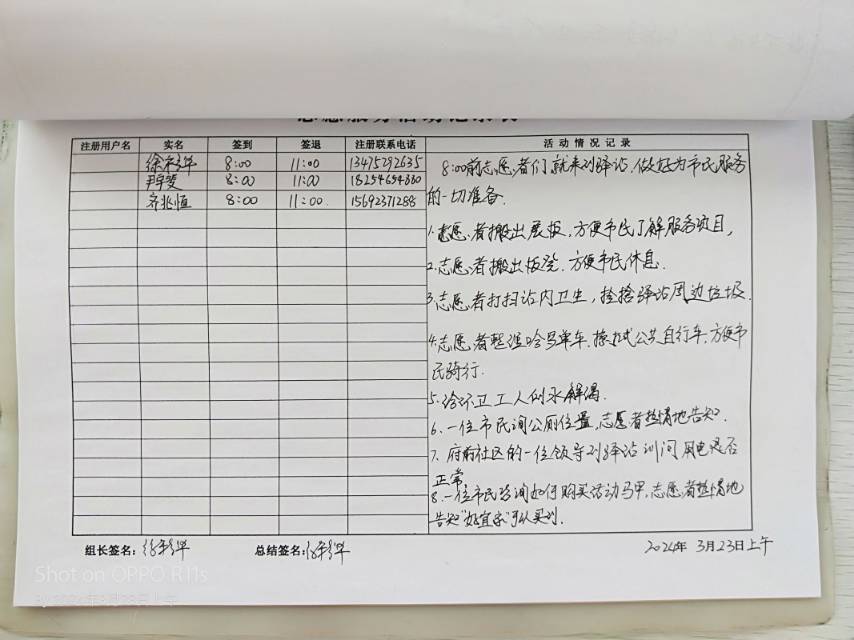 志愿服务活动记录表
注册用户名 实名 签到 签退 注册联系电话 活动情况记录
8:00 11:00 13475292635
8:00 11:00 18254654880
齐兆恒 8:00 11:00 15692371288
8:00前志愿者们就来到驿站,做好为市民服务
的一切准备.
1.志愿者搬出展板,方便市民了解服务项目,
2.志愿者搬出板凳,方便市民休息.
3.志愿者打扫站内卫生,捡拾驿站周边垃圾.
4.志愿者整理哈罗单车,擦拭公共自行车,方便市
民骑行.
5.给环卫工人倒水解渴.
6.一位市民询公厕位置,志愿者热情地告知.
7.府前社区的一位领导到驿站训问用电是否
正常.
8.一位市民咨询如何购买活动马甲,志愿者热情地
告知"好宜家"可以买到.
组长签名: 总结签名: 2024年3月23日上午
Shot on OPPO R11s
2024年3月23日上午